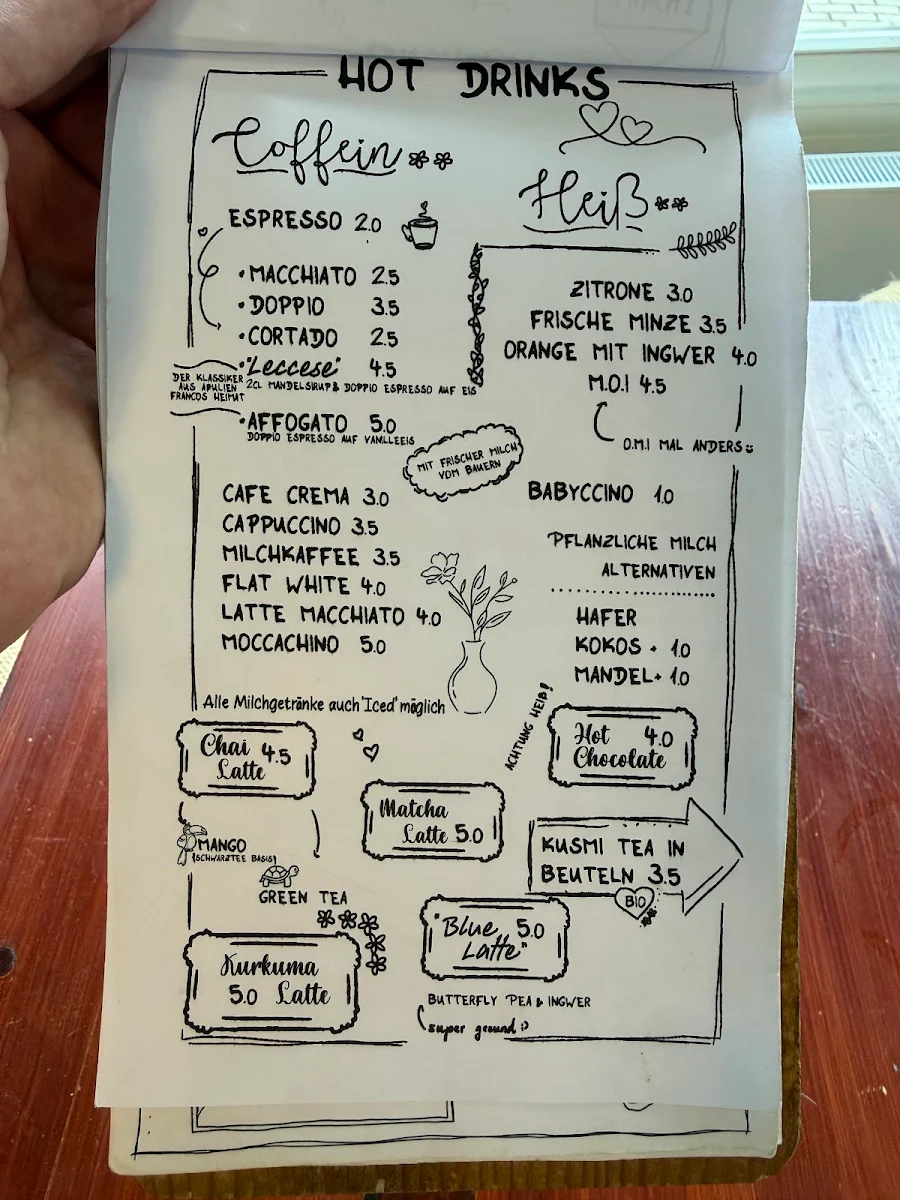 HOT DRINKS
Coffein
ESPRESSO 2.0
• MACCHIATO 2.5
• DOPPIO 3.5
• CORTADO 2.5
• "Leccese" 4.5
2CL MANDELSIRUP & DOPPIO ESPRESSO AUF EIS
DER KLASSIKER
AUS APULIEN
FRANCOS HEIMAT
• AFFOGATO 5.0
DOPPIO ESPRESSO AUF VANILLEEIS
MIT FRISCHER MILCH
VOM BAUERN
CAFE CREMA 3.0
CAPPUCCINO 3.5
MILCHKAFFEE 3.5
FLAT WHITE 4.0
LATTE MACCHIATO 4.0
MOCCACHINO 5.0
Alle Milchgetränke auch 'Iced' möglich
Heiß
ZITRONE 3.0
FRISCHE MINZE 3.5
ORANGE MIT INGWER 4.0
M.O.I 4.5
O.M.I MAL ANDERS
BABYCCINO 1.0
PFLANZLICHE MILCH
ALTERNATIVEN
HAFER
KOKOS + 1.0
MANDEL + 1.0
Chai 4.5
Latte
MANGO
(SCHWARZTEE BASIS)
GREEN TEA
Matcha
Latte 5.0
ACHTUNG HEIß!
Hot 4.0
Chocolate
KUSMI TEA IN
BEUTELN 3.5
BIO
Kurkuma
5.0 Latte
"Blue 5.0
Latte"
BUTTERFLY PEA & INGWER
super gesund :)